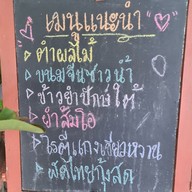 เมนูแนะนำ
ตำผลไม้
ขนมจีนซาวน้ำ
ข้าวยำปักษ์ใต้
ยำส้มโอ
โรตีแกงเขียวหวาน
ผัดไทยกุ้งสด